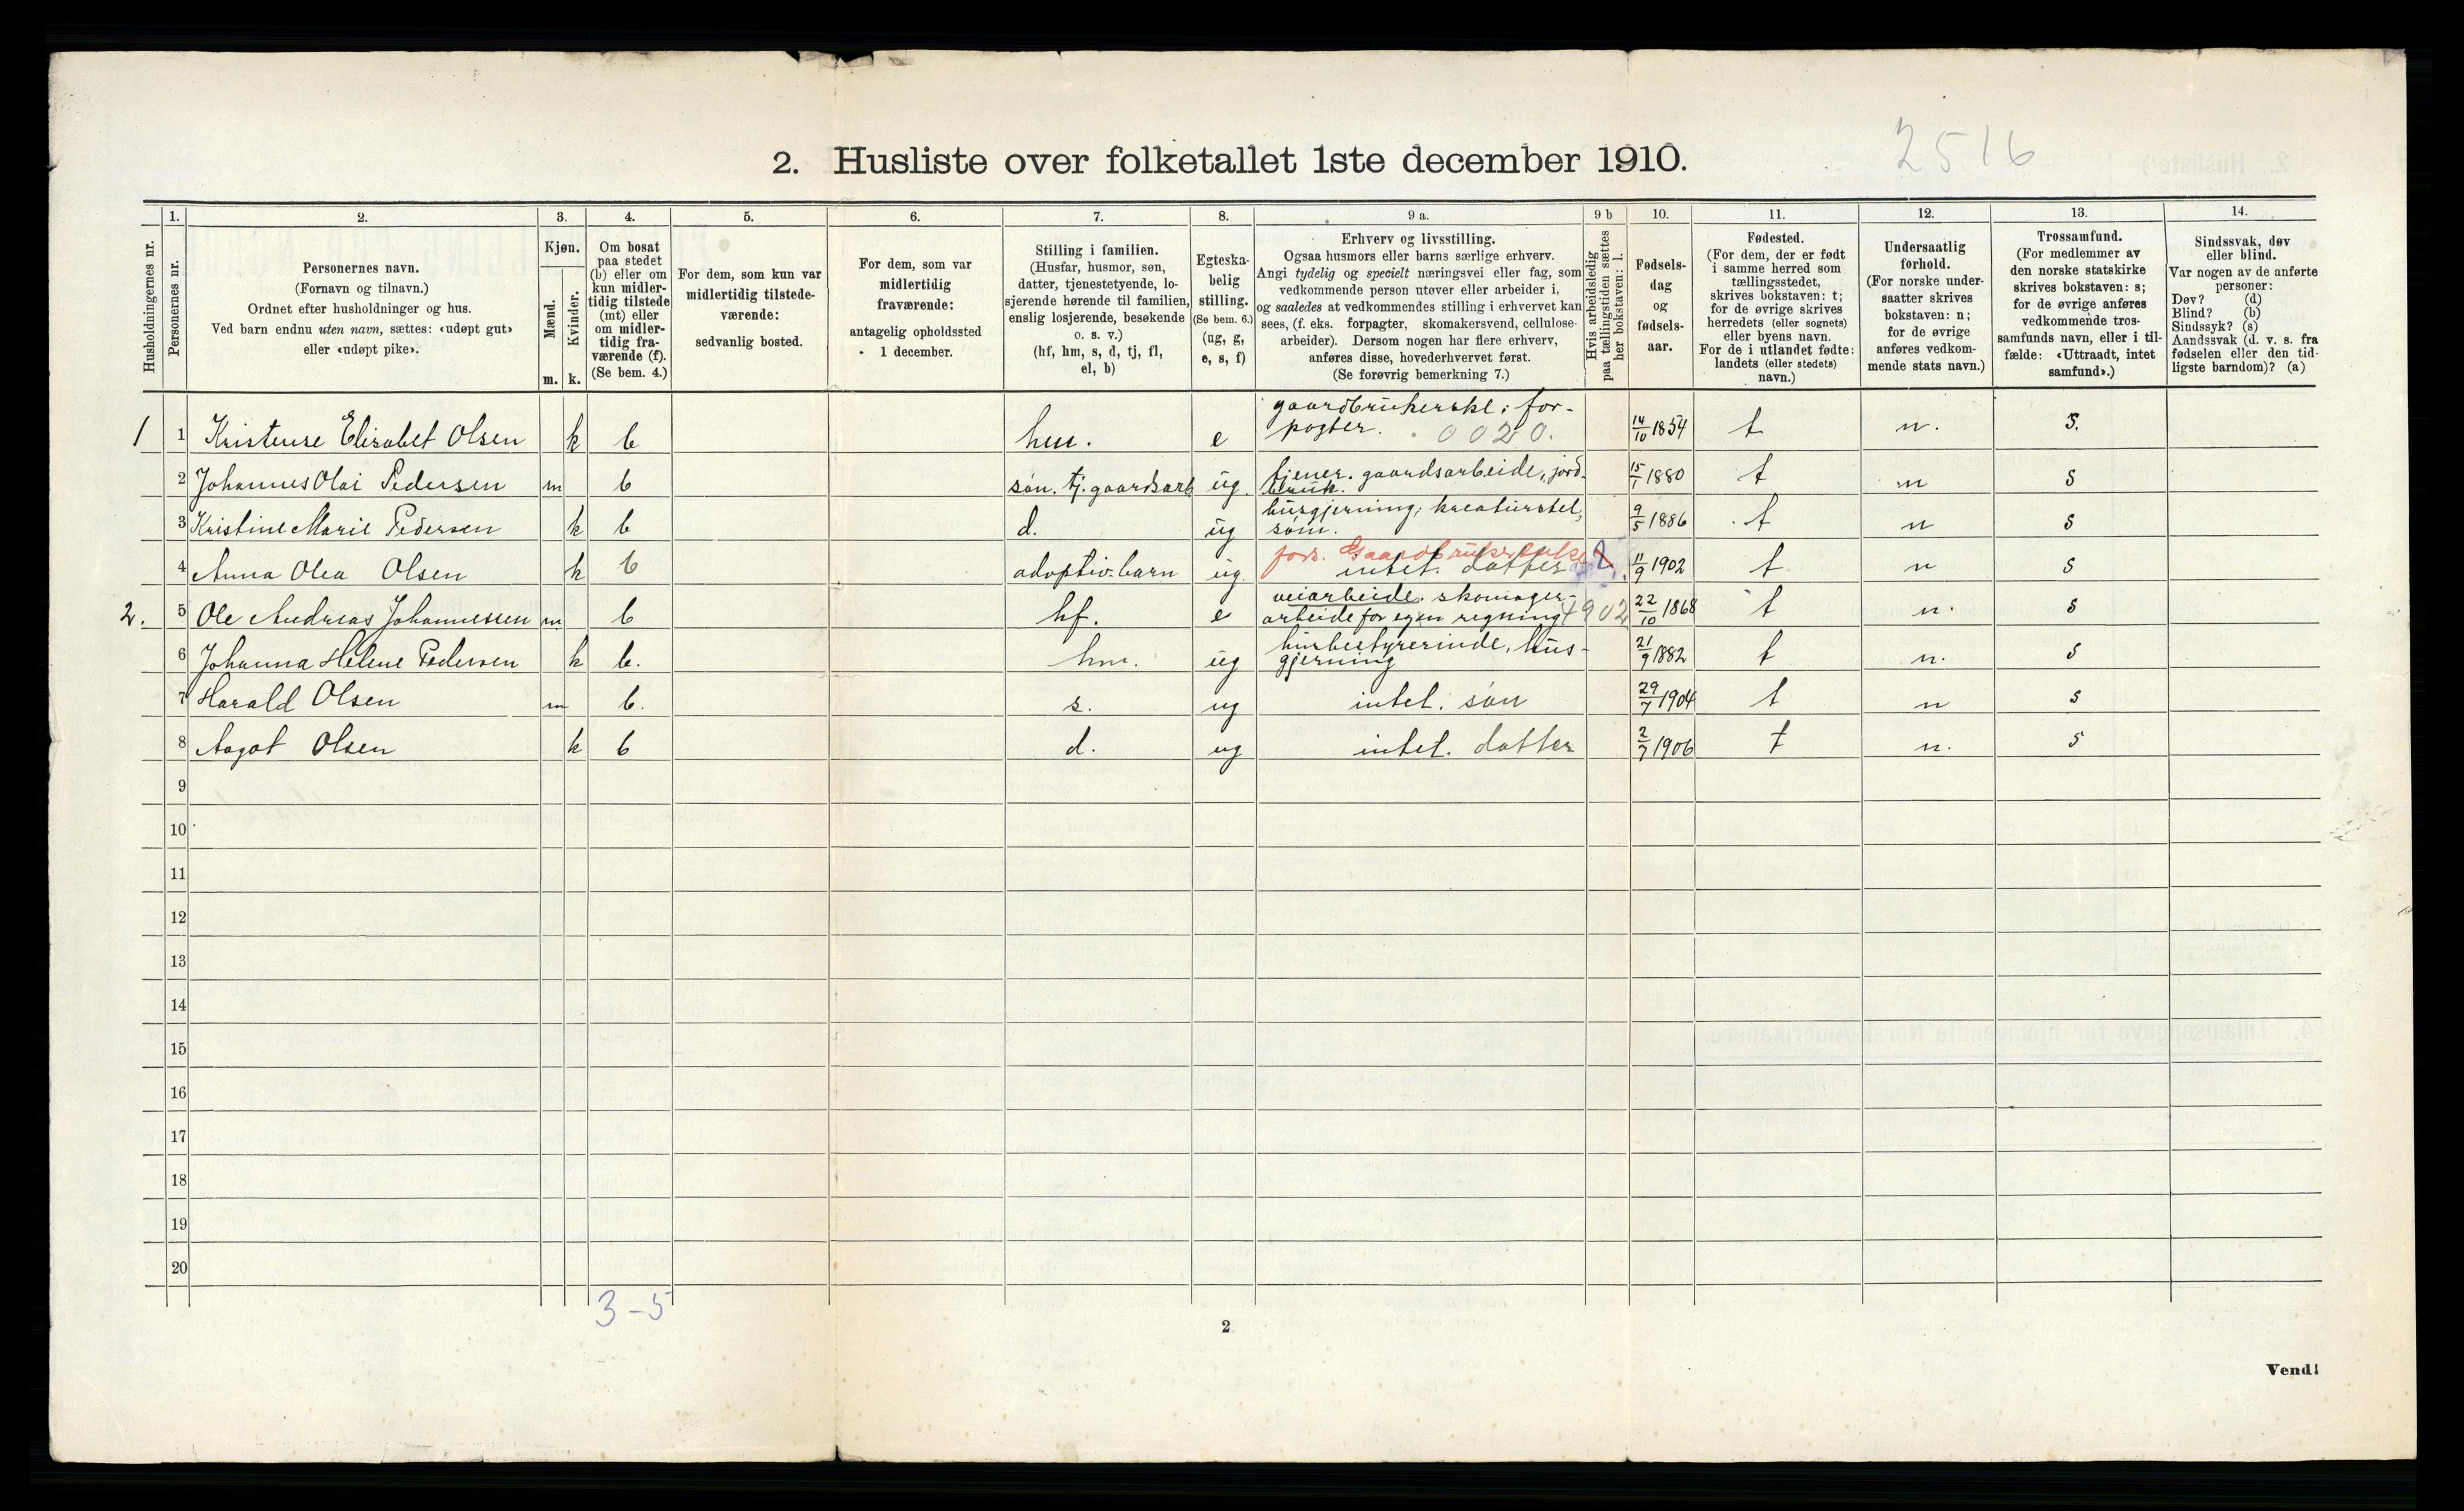 2516
2. Husliste over folketallet 1ste december 1910.
1. 2. 3. 4. 5. 6. 7. 8. 9 a. 9 b 10. 11. 12. 13. 14.
Husholdningernes nr.
Personernes nr.
Personernes navn.
(Fornavn og tilnavn.)
Ordnet efter husholdninger og hus.
Ved barn endnu uten navn, sættes: «udøpt gut»
eller «udøpt pike».
Kjøn.
Mænd.
Kvinder.
m. k.
Om bosat
paa stedet
(b) eller om
kun midler-
tidig tilstede
(mt) eller
om midler-
tidig fra-
værende (f).
(Se bem. 4.)
For dem, som kun var
midlertidig tilstede-
værende:
sedvanlig bosted.
For dem, som var
midlertidig
fraværende:
antagelig opholdssted
1 december.
Stilling i familien.
(Husfar, husmor, søn,
datter, tjenestetyende, lo-
sjerende hørende til familien,
enslig losjerende, besøkende
o. s. v.)
(hf, hm, s, d, tj, fl,
el, b)
Egteska-
belig
stilling.
(Se bem. 6.)
(ug, g,
e, s, f)
Erhverv og livsstilling.
Ogsaa husmors eller barns særlige erhverv.
Angi tydelig og specielt næringsvei eller fag, som
vedkommende person utøver eller arbeider i,
og saaledes at vedkommendes stilling i erhvervet kan
sees, (f. eks. forpagter, skomakersvend, cellulose-
arbeider). Dersom nogen har flere erhverv,
anføres disse, hovederhvervet først.
(Se forøvrig bemerkning 7.)
Hvis arbeidsledig
paa tællingstiden sættes
her bokstaven: l.
Fødsels-
dag
og
fødsels-
aar.
Fødested.
(For dem, der er født
i samme herred som
tællingsstedet,
skrives bokstaven: t;
for de øvrige skrives
herredets (eller sognets)
eller byens navn.
For de i utlandet fødte:
landets (eller stedets)
navn.)
Undersaatlig
forhold.
(For norske under-
saatter skrives
bokstaven: n;
for de øvrige
anføres vedkom-
mende stats navn.)
Trossamfund.
(For medlemmer av
den norske statskirke
skrives bokstaven: s;
for de øvrige anføres
vedkommende tros-
samfunds navn, eller i til-
fælde: «Uttraadt, intet
samfund».)
Sindssvak, døv
eller blind.
Var nogen av de anførte
personer:
Døv? (d)
Blind? (b)
Sindssyk? (s)
Aandssvak (d. v. s. fra
fødselen eller den tid-
ligste barndom)? (a)
gaardbrukerske: for-
1 1 Kristense Elisabet Olsen k b hm. e pagter. 0020. 14/10 1854 t n. s.
2 Johannes Olai Pedersen m b søn. tj. gaardsarb ug. tjener. gaardsarbeide, jord- 15/1 1880 t n s
bruk.
husgjerning; kreaturstel,
3 Kristine Marie Pedersen k b d. ug søm. 9/5 1886 t n s
fors. Gaardbrukerske
4 Anna Olea Olsen k b adoptiv-barn ug. intet. datter 11/9 1902 t n s
veiarbeide. skomager-
2. 5 Ole Andreas Johannessen m b hf. e arbeide for egen regning 4902 22/10 1868 t n. s
husbestyrerinde, hus-
6 Johanna Helene Pedersen k b. hm. ug gjerning 21/9 1882 t n. s
7 Harald Olsen m b. s. ug intet. søn 29/7 1904 t n s
8 Aagot Olsen k b d. ug intet. datter 2/7 1906 t n. s
9
10
11
12
13
14
15
16
17
18
19
20
3-5
2
Vend!